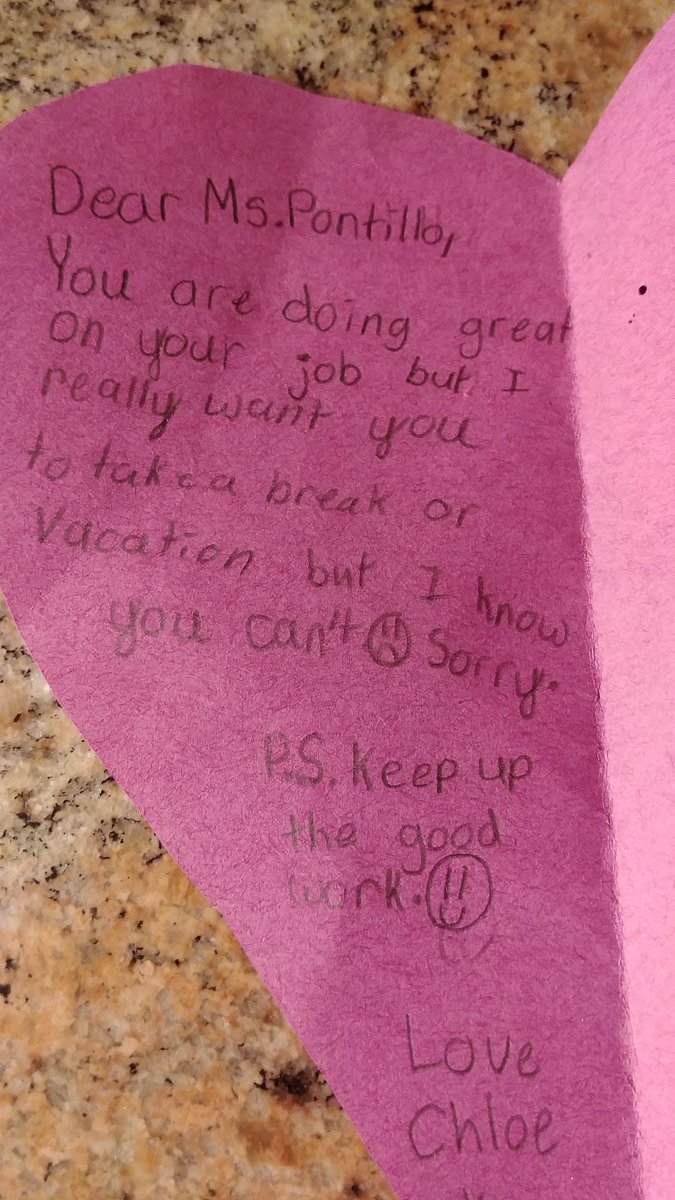 Dear Ms.Pontillo,
You are doing great
on your job but I
really want you
to take a break or
Vacation but I know
you can't Sorry.
P.S. Keep up
the good
work.
Love
Chloe